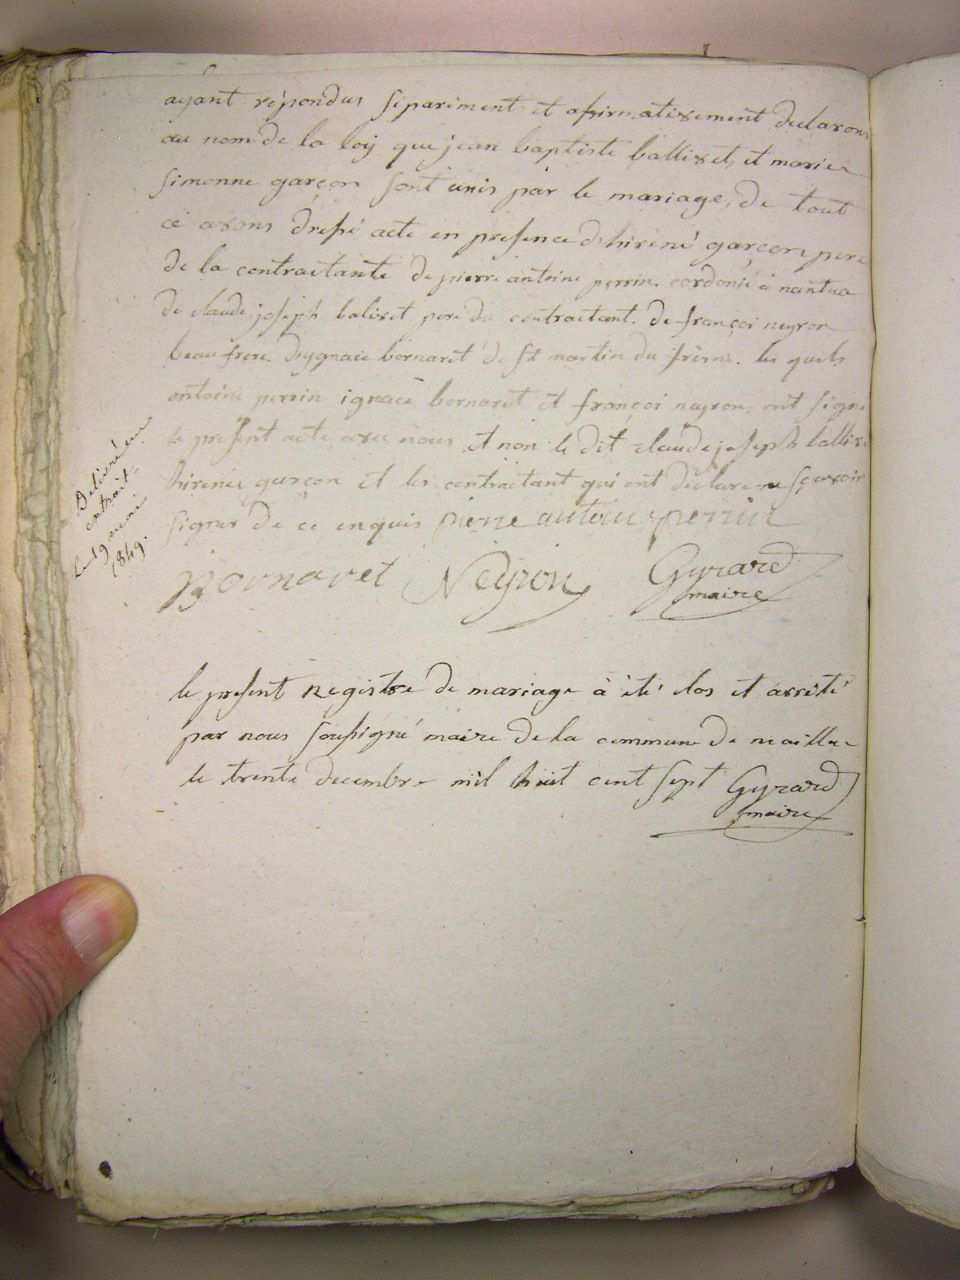 ayant répondus séparément et afirmativement declarons
au nom de la loy que jean baptiste ballivet et marie
simonne garçon sont unis par le mariage, de tout
ce avons dressé acte en presence d'hirené garçon pere
de la contractante de pierre antoine perrin cordonié a nantua
de claude joseph balivet pere du contractant. de françoi neyron
beau frere dygnaie bornaret de st martin du frêne. les quels
antoine perrin ignace bornaret et françoi neyron ont signé
le present acte avec nous et non le dit claude joseph ballive
hirenée garçon et les contractant qui ont déclaré ne scavoir
signer de ce enquis pierre antoine perrin
Bornaret Neyron Gyrard
maire
Délivré un
extrait
le 19
1849.
le present Registre de mariage à été clos et arrêté
par nous soussigné maire de la commune de maillac
le trente decembre mil huit cent sept Gyrard
maire